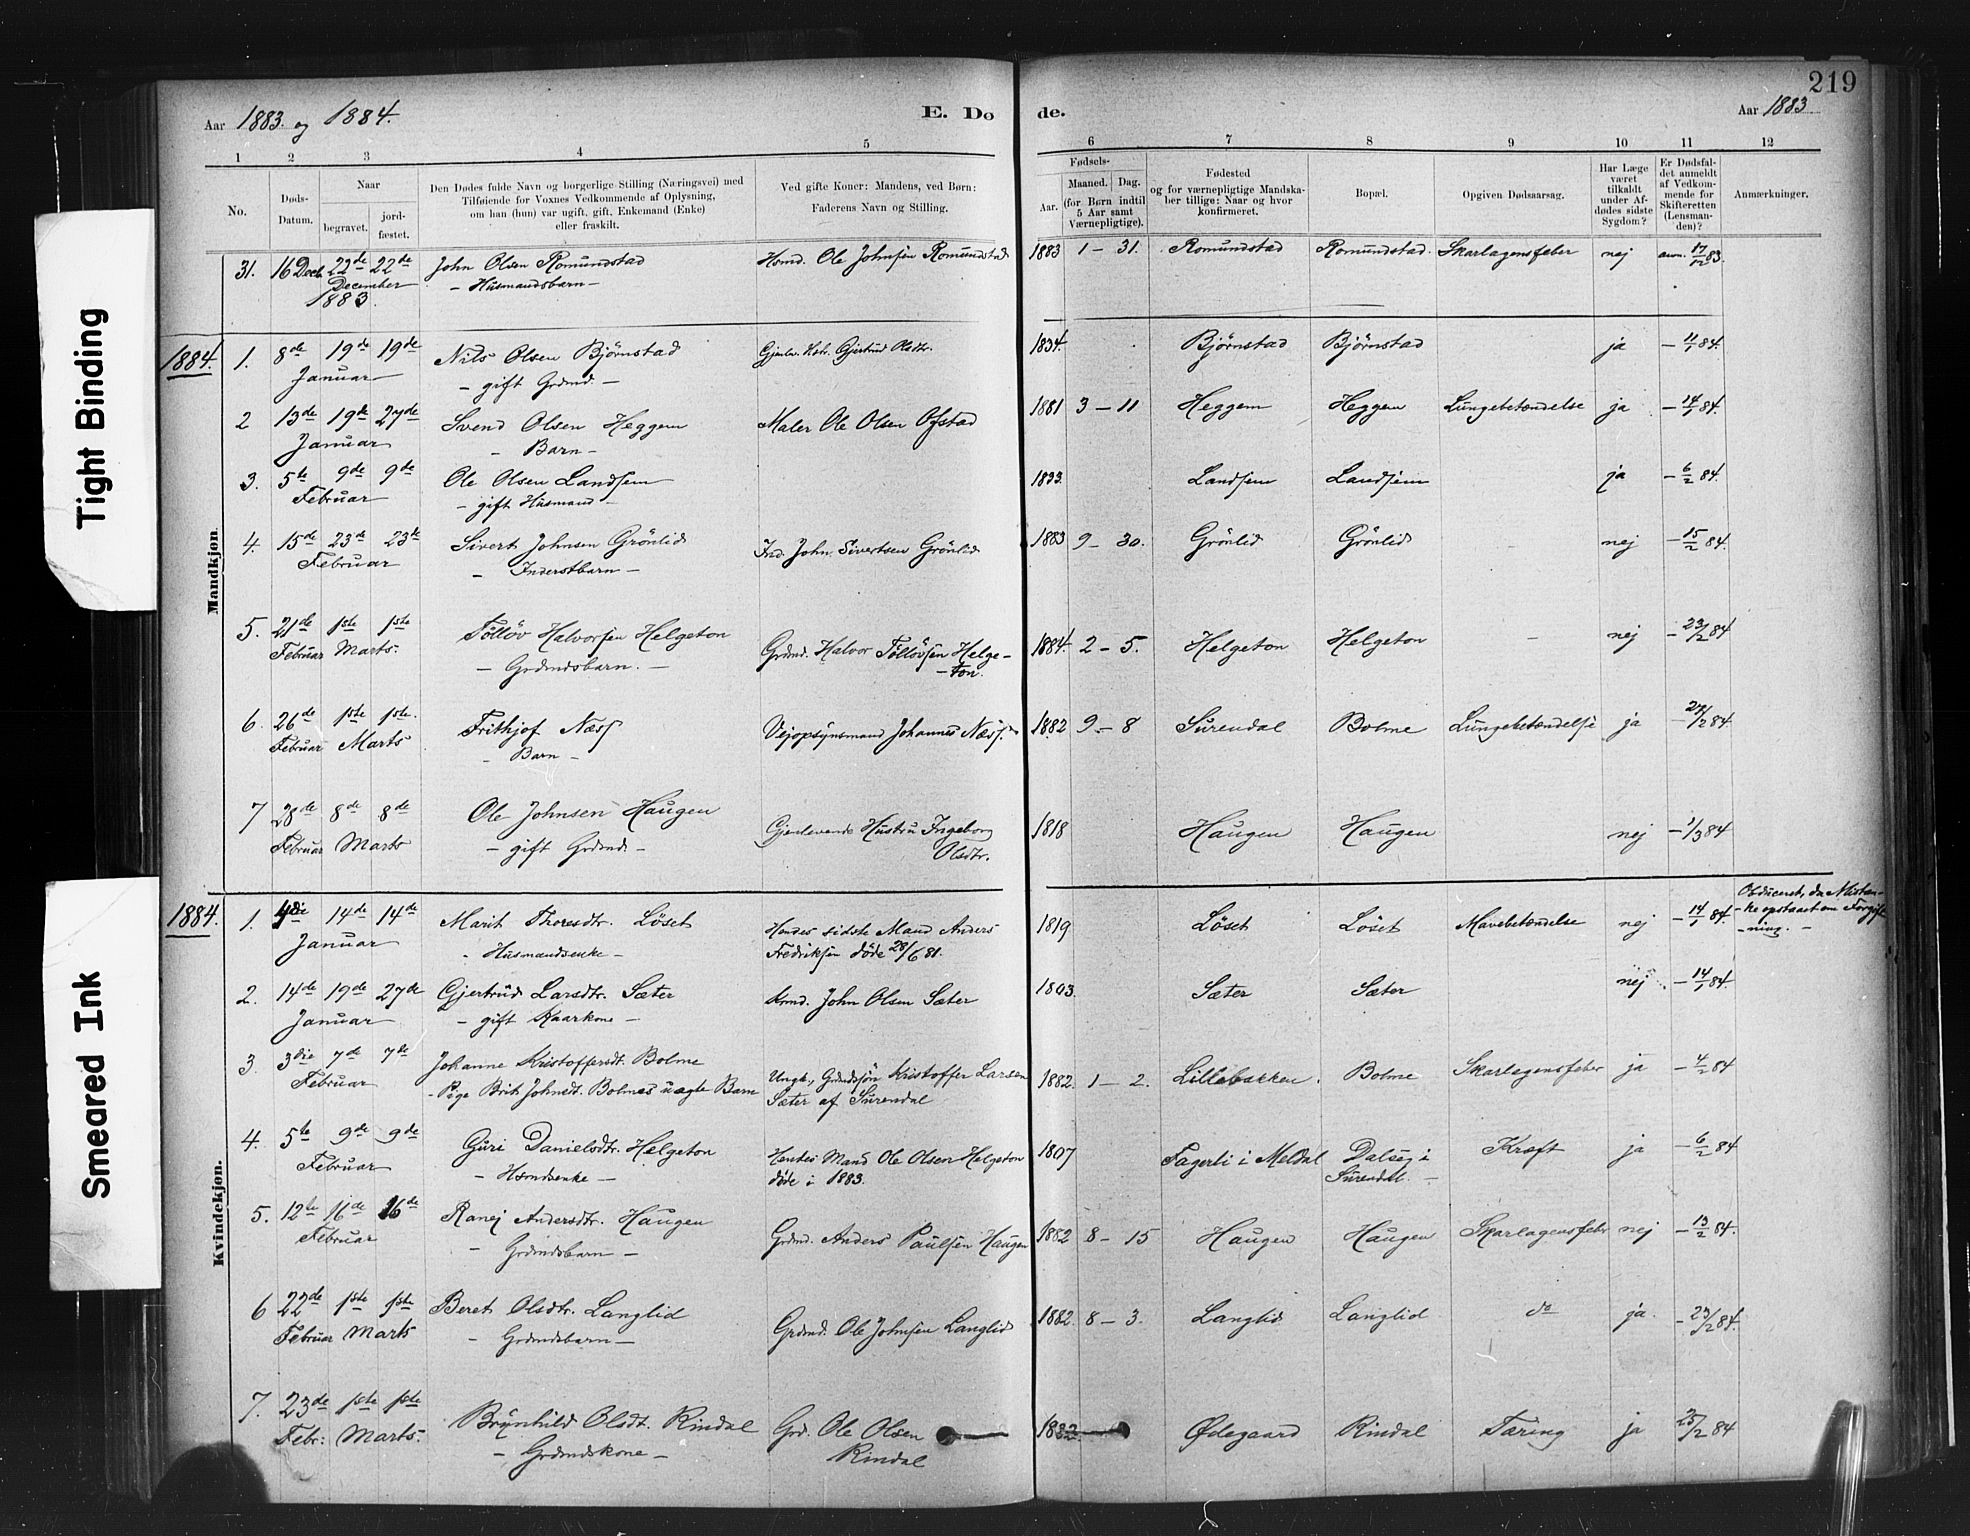 219
Aar 1883 og 1884.
E. Dø
de.
Aar 1883
Tight Binding
Smeared Ink
1 2 3 4 5 6 7 8 9 10 11 12
No.
Døds-Datum.
Naar
begravet.
jordfæstet.
Den Dødes fulde Navn og borgerlige Stilling (Næringsvei) med
Tilføiende for Voxnes Vedkommende af Oplysning,
om han (hun) var ugift, gift, Enkemand (Enke)
eller fraskilt.
Ved gifte Koner: Mandens, ved Børn:
Faderens Navn og Stilling.
Fødsels-
Aar.
Maaned. Dag.
(for Børn indtil
5 Aar samt
Værnepligtige).
Fødested
og for værnepligtige Mandska-
ber tillige: Naar og hvor
konfirmeret.
Bopæl.
Opgiven Dødsaarsag.
Har Læge
været
tilkaldt
under Af-
dødes sidste
Sygdom?
Er Dødsfal-
det anmeldt
af Vedkom-
mende for
Skifteretten
(Lensman-
den)?
Anmærkninger.
31. 16 Dec. 22de 22de John Olsen Romundstad Hsmd. Ole Johnsen Romundstad 1883 1 - 31. Romundstad Romundstad. Skarlagensfeber nej anm. 17/12 83.
December - Husmandsbarn -
1883.
Mandkjøn
1884. 1. 8de 19de 19de Nils Olsen Bjørnstad Gjenlev. Hstr. Gjertrud Olsdtr. 1834. Bjørnstad Bjørnstad ja - 11/1 84.
Januar - gift Grdmd. -
2 13de 19de 27de Svend Olsen Heggem Maler Ole Olsen Ofstad 1881 3 - 11 Heggem Heggem Lungebetændelse ja - 14/1 84.
Januar - Barn -
3. 5te 9de 9de Ole Olsen Landsem 1833. Landsem Landsem ja - 6/2 84.
Februar - gift Husmand -
4. 15de 23de 23de Sivert Johnsen Grönlid Ind. John Sivertsen Grönlid 1883 9 - 30. Grönlid Grönlid nej - 15/2 84.
Februar - Inderstbarn -
5. 21de 1ste 1ste Tölløv Halvorsen Helgeton Grdmd. Halvor Tölløvsen Helge- 1884. 2 - 5. Helgeton Helgeton nej - 23/2 84
Februar Marts. - Grdmdsbarn. - -ton.
6. 26de 1ste 1ste. Frithjof Næss Vejopsynsmand Johannes Næss. 1882 9 - 8 Surendal Bolme Lungebetændelse ja - 27/2 84
Februar Marts - Barn -
7 28de 8de 8de Ole Johnsen Haugen Gjenlevende Hustru Ingeborg 1818 Haugen Haugen nej - 1/3 84
Februar Marts - gift Grdmd. - Olsdtr.
Kvindekjøn.
1884. 1. 14de 14de Marit Thoresdtr. Löset Hendes sidste Mand Anders 1819 Löset Löset Mavebetændelse nej - 14/1 84. Obduceret, da Mistan-
Januar - Husmandsenke - Fredriksen döde 28/6 81. -ke opstaaet om Forgift-
-ning. -
2. 14de 19de 27de Gjertrud Larsdtr. Sæter Krmd. John Olsen Sæter 1803. Sæter Sæter nej - 14/1 84.
Januar - gift Kaarkone -
3. 3die 7de 7de Johanne Kristoffersdt. Bolme Ungk., Grdmdssön Kristoffer Larsen 1882. 1 - 2. Lillebakken. Bolme Skarlagensfeber ja - 4/2 84
Februar - Pige Brit Johnsdt. Bolmes uægte Barn Sæter af Surendal
4. 5te 9de 9de Guri Danielsdtr. Helgeton Hendes Mand Ole Olsen Helgeton 1807 Fagerli i Meldal Dalseg i Kræft ja - 6/2 84
Februar - Hsmdsenke - döde i 1883. Surendal. -
5. 12te 16de 16de Ranej Andersdtr. Haugen Grdmd. Anders Paulsen Haugen 1882 8 - 15 Haugen Haugen Skarlagensfeber nej - 13/2 84.
Februar - Grdmdsbarn -
6 22de 1ste 1ste Beret Olsdtr. Langlid Grdmd. Ole Johnsen Langlid 1882. 8 - 3. Langlid Langlid do ja. - 23/2 84.
Februar Marts - Grdmdsbarn -
7. 23de 1ste 1ste Brynhild Olsdt. Rindal Grd. Ole Olsen Ødegaard Rindal Tæring ja 25/2 84
Febr: Marts. - Grdmdskone - Rindal